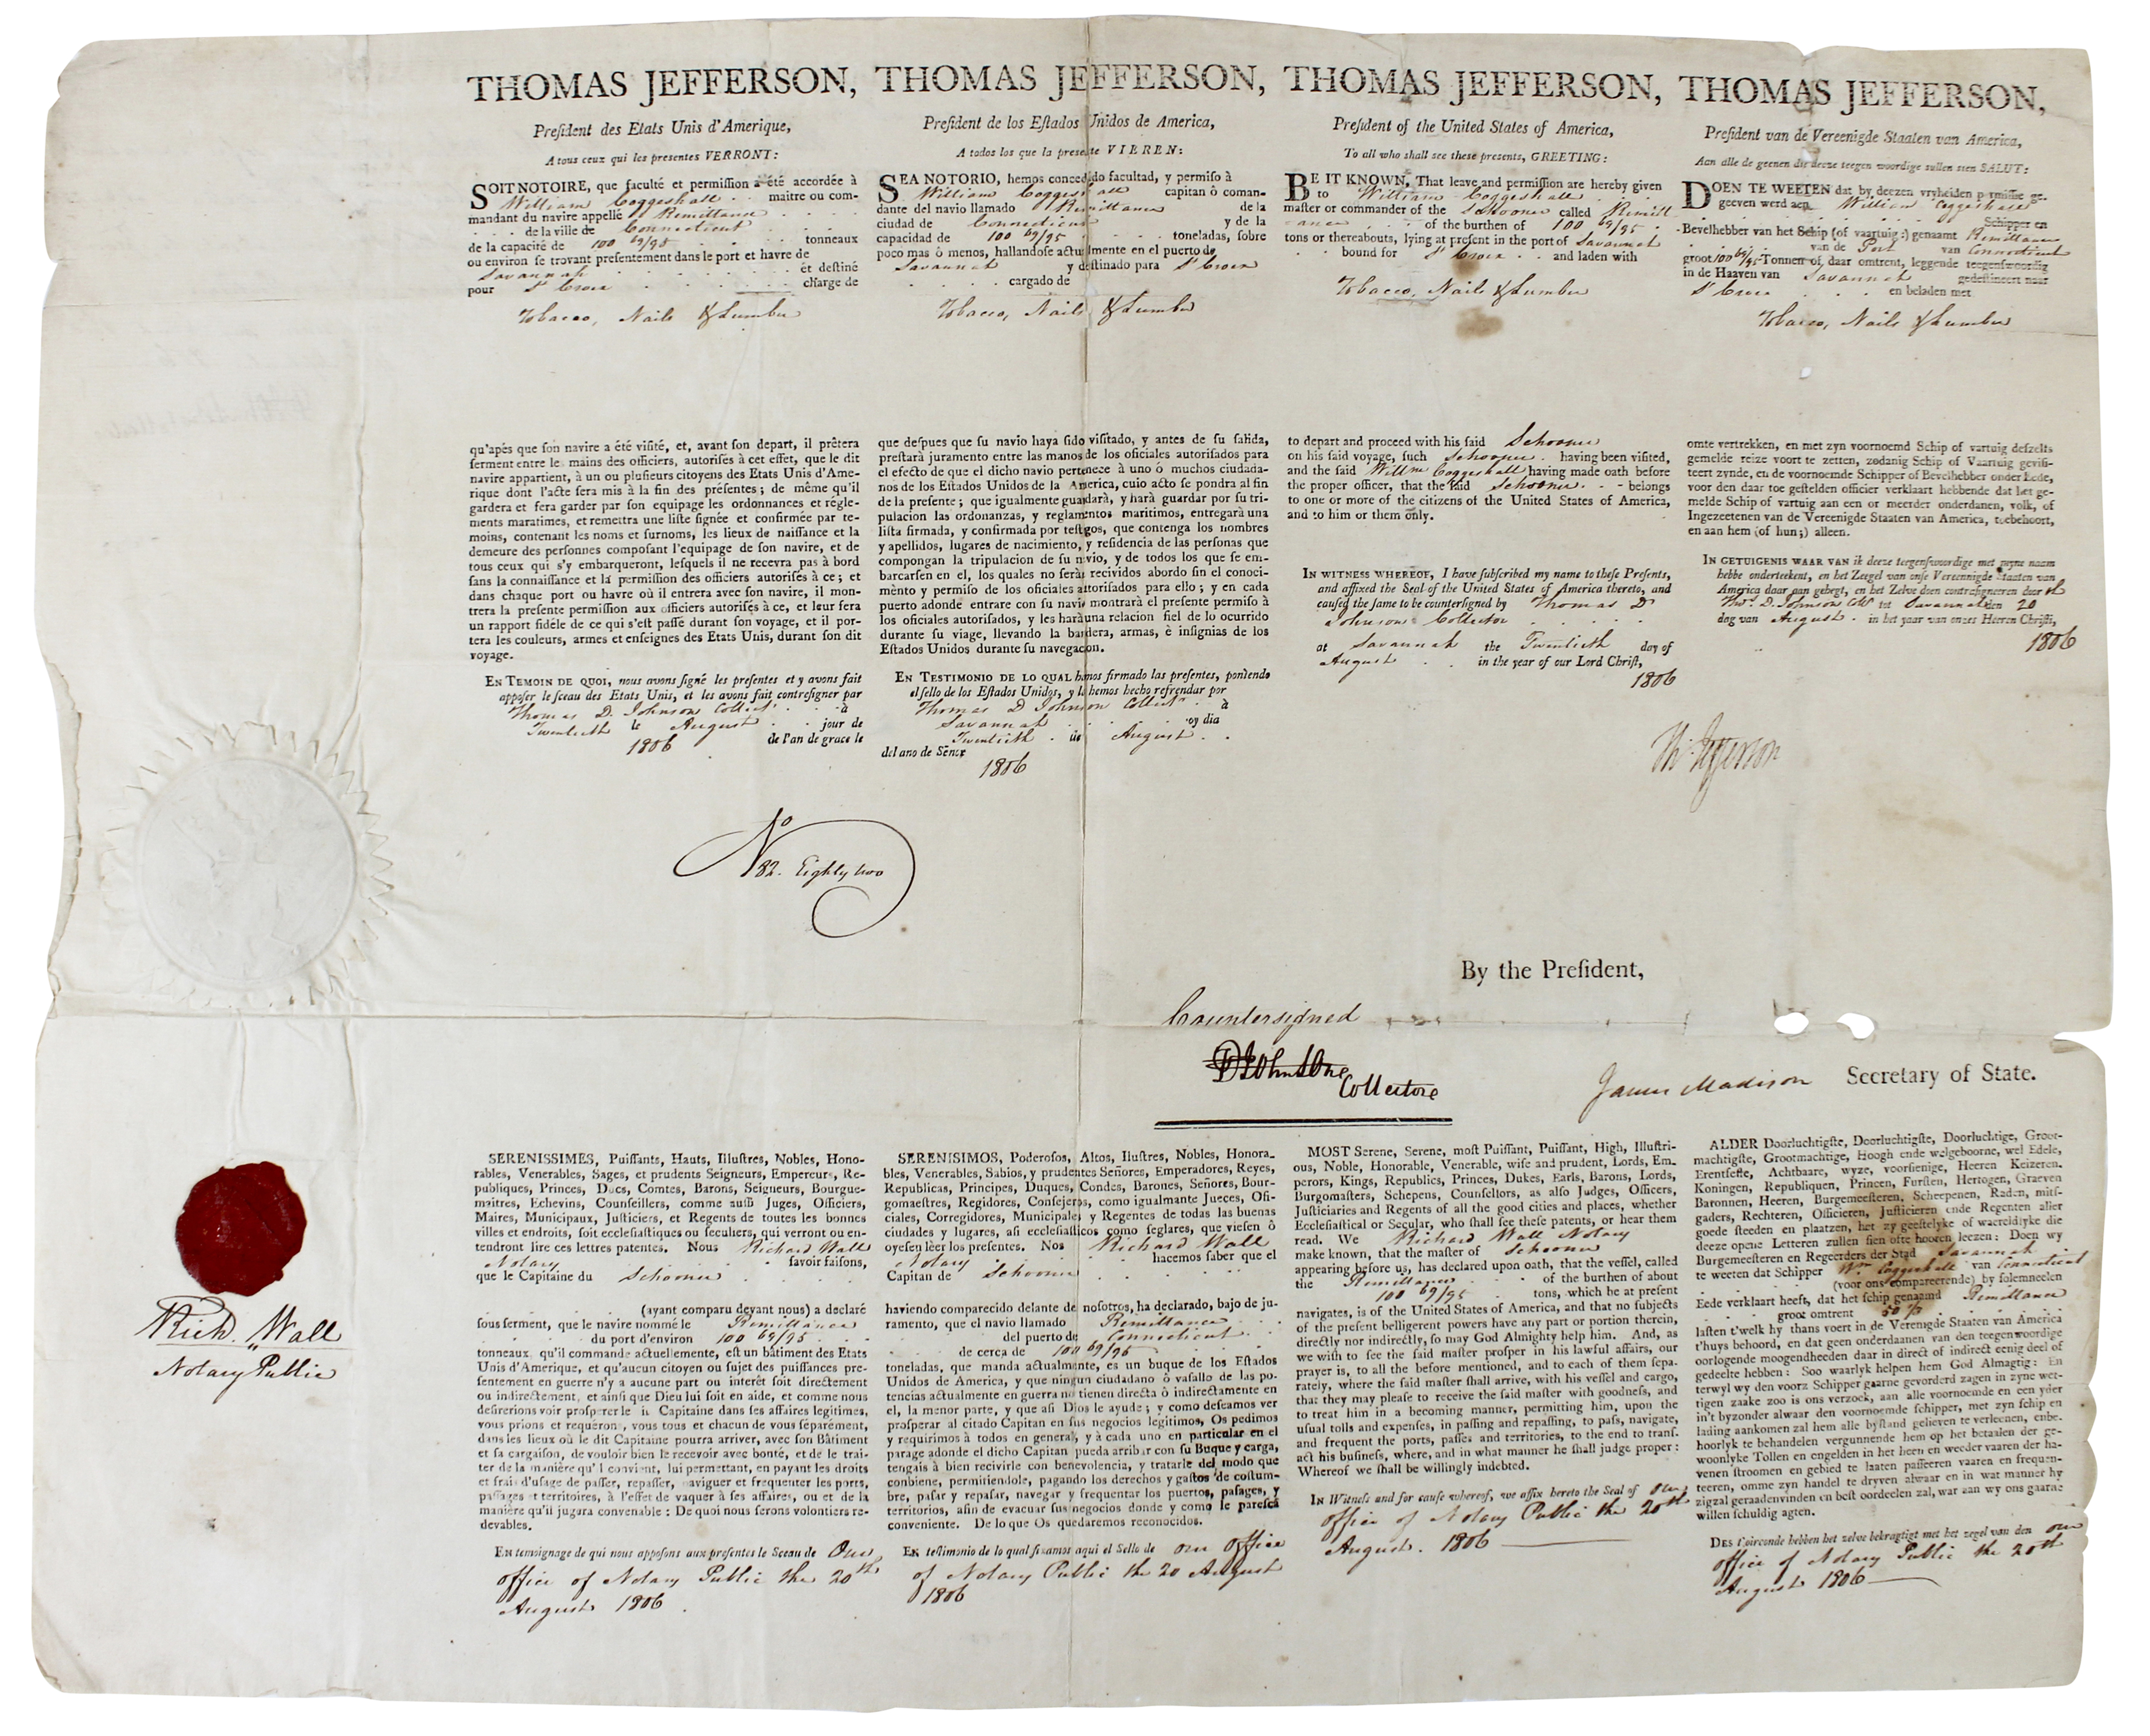 THOMAS JEFFERSON,
President des Etats Unis d'Amerique,
A tous ceux qui les presentes VERRONT:
SOIT NOTOIRE, que faculté et permission a été accordée à
William Coggeshall maitre ou com-
mandant du navire appellé Remittance
de la ville de Connecticut
de la capacité de 100 69/95 tonneaux
ou environ se trovant presentement dans le port et havre de
Savannah et destiné
pour St Croix charge de
Tobacco, Nails & Lumber
qu'apés que son navire a été visité, et, avant son depart, il prêtera
serment entre le mains des officiers, autorisés à cet effet, que le dit
navire appartient, à un ou plusieurs citoyens des Etats Unis d'Ame-
rique dont l'acte sera mis à la fin des présentes; de même qu'il
gardera et fera garder par son equipage les ordonnances et régle-
ments maratimes, et remettra une liste signée et confirmée par te-
moins, contenant les noms et surnoms, les lieux de naissance et la
demeure des personnes composant l'equipage de son navire, et de
tous ceux qui s'y embarqueront, lesquels il ne recevra pas à bord
sans la connaissance et la permission des officiers autorisés à ce; et
dans chaque port ou havre où il entrera avec son navire, il mon-
trera la presente permission aux officiers autorisés à ce, et leur fera
un rapport fidéle de ce qui s'est passé durant son voyage, et il por-
tera les couleurs, armes et enseignes des Etats Unis, durant son dit
voyage.
EN TEMOIN DE QUOI, nous avons signé les presentes et y avons fait
apposer le sceau des Etats Unis, et les avons fait contresigner par
Thomas D. Johnson Collectr à
Twentieth le August jour de
1806 de l'an de grace le
THOMAS JEFFERSON,
President de los Estados Unidos de America,
A todos los que la presente VIEREN:
SEA NOTORIO, hemos concedido facultad, y permiso à
William Coggeshall capitan ô coman-
dante del navio llamado Remittance de la
ciudad de Connecticut y de la
capacidad de 100 69/95 toneladas, sobre
poco mas ô menos, hallandose actualmente en el puerto de
Savannah y destinado para St Croix
cargado de
Tobacco, Nails & Lumber
que despues que su navio haya sido visitado, y antes de su salida,
prestará juramento entre las manos de los oficiales autorisados para
el efecto de que el dicho navio pertenece à uno ó muchos ciudada-
nos de los Estados Unidos de la America, cuio acto se pondra al fin
de la presente; que igualmente guardarà, y harà guardar por su tri-
pulacion las ordonanzas, y reglamentos maritimos, entregarà una
lista firmada, y confirmada por testigos, que contenga los nombres
y apellidos, lugares de nacimiento, y residencia de las personas que
compongan la tripulacion de su navio, y de todos los que se em-
barcarsen en el, los quales no seràn recividos abordo sin el conoci-
mènto y permiso de los oficiales autorisados para ello; y en cada
puerto adonde entrare con su navio montrarà el presente permiso à
los oficiales autorisados, y les harà una relacion fiel de lo ocurrido
durante su viage, llevando la bandera, armas, è insignias de los
Estados Unidos durante su navegacon.
EN TESTIMONIO DE LO QUAL hemos firmado las presentes, poniendo
el sello de los Estados Unidos, y le hemos hecho refrendar por
Thomas D Johnson Collectr à
Savannah oy dia
Twentieth de August
del ano de Senor
1806
THOMAS JEFFERSON,
President of the United States of America,
To all who shall see these presents, GREETING:
BE IT KNOWN, That leave and permission are hereby given
to William Coggeshall
master or commander of the Schooner called Remitt
ance of the burthen of 100 69/95
tons or thereabouts, lying at present in the port of Savannah
bound for St Croix and laden with
Tobacco, Nails & Lumber
to depart and proceed with his said Schooner
on his said voyage, such Schooner having been visited,
and the said Willm Coggeshall having made oath before
the proper officer, that the said Schooner belongs
to one or more of the citizens of the United States of America,
and to him or them only.
IN WITNESS WHEREOF, I have subscribed my name to these Presents,
and affixed the Seal of the United States of America thereto, and
caused the same to be countersigned by Thomas D
Johnson Collector
at Savannah the Twentieth day of
August in the year of our Lord Christ,
1806
THOMAS JEFFERSON,
President van de Vereenigde Staaten van America,
Aan alle de geenen die deeze teegen woordige sullen sien SALUT:
DOEN TE WEETEN dat by deezen vryheiden permissie ge-
geeven werd aen William Coggeshall
Schipper en
Bevelhebber van het Schip (of vaartuig:) genaamt Remittance
van de Port van Connecticut
groot 100 69/95 Tonnen of, daar omtrent, leggende teegenswoordig
in de Haaven van Savannah gedestineert naar
St Croix en beladen met
Tobacco, Nails & Lumber
omte vertrekken, en met zyn voornoemd Schip of vartuig deszelfs
gemelde reize voort te zetten, zodanig Schip of Vaartuig gevisi-
teert zynde, en de voornoemde Schipper of Bevelhebber onder Ede,
voor den daar toe gestelden officier verklaart hebbende dat het ge-
melde Schip of vartuig aan een or meerder onderdanen, volk, of
Ingezeetenen van de Vereenigde Staaten van America, toebehoort,
en aan hem (of hun;) alleen.
IN GETUIGENIS WAAR VAN ik deeze teegenswoordige met myne naam
hebbe onderteekent, en het Zeegel van onse Vereenigde Staaten van
America daar aan gehegt, en het Zelve doen contrasigneren door
Thos. D. Johnson Collr tot Savannah den 20
dag van August in het jaar van onzes Heeren Christi,
1806
Th: Jefferson
No 82. Eighty two
By the President,
Countersigned
Collectore
James Madison Secretary of State.
SERENISSIMES, Puissants, Hauts, Illustres, Nobles, Hono-
rables, Venerables, Sages, et prudents Seigneurs, Empereurs, Re-
publiques, Princes, Ducs, Comtes, Barons, Seigneurs, Bourgue-
maitres, Echevins, Counseillers, comme aussi Juges, Officiers,
Maires, Municipaux, Justiciers, et Regents de toutes les bonnes
villes et endroits, soit ecclesiastiques ou seculiers, qui verront ou en-
tendront lire ces lettres patentes. Nous Richard Wall
Notary savoir faisons,
que le Capitaine du Schooner
(ayant comparu devant nous) a declaré
sous serment, que le navire nommé le Remittance
du port d'environ 100 69/95
tonneaux qu'il commande actuellemente, est un bâtiment des Etats
Unis d'Amerique, et qu'aucun citoyen ou sujet des puissances pre-
sentement en guerre n'y a aucune part ou interêt soit directement
ou indirectement, et ainsi que Dieu lui soit en aide, et comme nous
desirerions voir prosperer le Capitaine dans ses affaires legitimes,
vous prions et requérons, vous tous et chacun de vous séparément,
dans les lieux où le dit Capitaine pourra arriver, avec son Bâtiment
et sa cargaison, de vouloir bien le recevoir avec bonté, et de le trai-
ter de la manière qu'l convient, lui permettant, en payant les droits
et frais d'usage de passer, repasser, naviguer et frequenter les ports,
passages et territoires, à l'effet de vaquer à ses affaires, ou et de la
manière qu'il jugara convenable: De quoi nous serons volontiers re-
devables.
En temoignage de qui nous apposons aux presentes le Sceau de Our
office of Notary Public the 20th
August 1806
SERENISIMOS, Poderosos, Altos, Ilustres, Nobles, Honora-
bles, Venerables, Sabios, y prudentes Señores, Emperadores, Reyes,
Republicas, Principes, Duques, Condes, Barones, Señores, Bour-
gomaestres, Regidores, Consejeros, como igualmante Jueces, Ofi-
ciales, Corregidores, Municipales y Regentes de todas las buenas
ciudades y lugares, asi eclesiasticos como seglares, que viesen ô
oyesen lêer los presentes. Nos Richard Wall
Notary hacemos saber que el
Capitan de Schooner
haviendo comparecido delante de nosotros, ha declarado, bajo de ju-
ramento, que el navio llamado Remittance
del puerto de Connecticut
de cerca de 100 69/95
toneladas, que manda actualmante, es un buque de los Estados
Unidos de America, y que ningun ciudadano ô vasallo de las po-
tencias actualmente en guerra no tienen directa ô indirectamente en
el, la menor parte, y que asi Dios le ayude; y como deseamos ver
prosperar al citado Capitan en sus negocios legitimos, Os pedimos
y requirimos à todos en general, y à cada uno en particular en el
parage adonde el dicho Capitan pueda arribar con su Buque y carga,
tengais à bien recivirle con benevolencia, y tratarle del modo que
conbiene, permitiendole, pagando los derechos y gastos de costum-
bre, pasar y repasar, navegar y frequentar los puertos, pasages, y
territorios, afin de evacuar sus negocios donde y como le paresca
conveniente. De lo que Os quedaremos reconocidos.
En testimonio de lo qual fixamos aqui el Sello de our office
of Notary Public the 20 August
1806
MOST Serene, Serene, most Puissant, Puissant, High, Illustri-
ous, Noble, Honorable, Venerable, wise and prudent, Lords, Em-
perors, Kings, Republics, Princes, Dukes, Earls, Barons, Lords,
Burgomasters, Schepens, Counsellors, as also Judges, Officers,
Justiciaries and Regents of all the good cities and places, whether
Ecclesiastical or Secular, who shall see these patents, or hear them
read. We Richard Wall Notary
make known, that the master of Schooner
appearing before us, has declared upon oath, that the vessel, called
the Remittance of the burthen of about
100 69/95 tons, which he at present
navigates, is of the United States of America, and that no subjects
of the present belligerent powers have any part or portion therein,
directly nor indirectly, so may God Almighty help him. And, as
we wish to see the said master prosper in his lawful affairs, our
prayer is, to all the before mentioned, and to each of them sepa-
rately, where the said master shall arrive, with his vessel and cargo,
that they may please to receive the said master with goodness, and
to treat him in a becoming manner, permitting him, upon the
usual tolls and expenses, in passing and repassing, to pass, navigate,
and frequent the ports, passes and territories, to the end to trans-
act his business, where, and in what manner he shall judge proper:
Whereof we shall be willingly indebted.
In Witness and for cause whereof, we affix hereto the Seal of Our
office of Notary Public the 20th
August. 1806
ALDER Doorluchtigste, Doorluchtigste, Doorluchtige, Groot-
machtigste, Grootmachtige, Hoogh ende welgeboorne, wel Edele,
Erentfeste, Achtbaare, wyze, voorsienige, Heeren Keizeren.
Koningen, Republiquen, Princen, Fursten, Hertogen, Graeven
Baronnen, Heeren, Burgemeesteren, Scheepenen, Raden, mits-
gaders, Rechteren, Officieren, Justicieren ende Regenten aller
goede steeden en plaatzen, het zy geestelyke of waereldlyke die
deeze opene Letteren zullen sien ofte hooren leezen: Doen wy
Burgemeesteren en Regeerders der Stad Savannah
te weeten dat Schipper Wm Coggeshall van Connecticut
(voor ons compareerende) by solemneelen
Eede verklaart heeft, dat het schip genaamd Remittance
groot omtrent
lasten t'welk hy thans voert in de Verenigde Staaten van America
t'huys behoord, en dat geen onderdaanen van den teegenwoordige
oorlogende moogendheeden daar in direct of indirect eenig deel of
gedeelte hebben: Soo waarlyk helpen hem God Almagtig: En
terwyl wy den voorz Schipper gaarne gevorderd zagen in zyne wet-
tigen zaake zoo is ons verzoek, aan alle voornoemde en een yder
in't byzonder alwaar den voornoemde schipper, met zyn schip en
lading aankomen zal hem alle bystand gelieven te verleenen, enbe-
hoorlyk te behandelen vergunnende hem op het betaalen der ge-
woonlyke Tollen en engelden in het heen en weeder vaaren der ha-
venen stroomen en gebied te laaten passeeren vaaren en frequen-
teeren, omme zyn handel te dryven alwaar en in wat manner hy
zigzal geraadenvinden en best oordeelen zal, war aan wy ons gaarne
willen schuldig agten.
DES t'oirconde hebben het zelve bekragtigt met het zegel van den our
office of Notary Public the 20th
August 1806
Rich. Wall
Notary Public